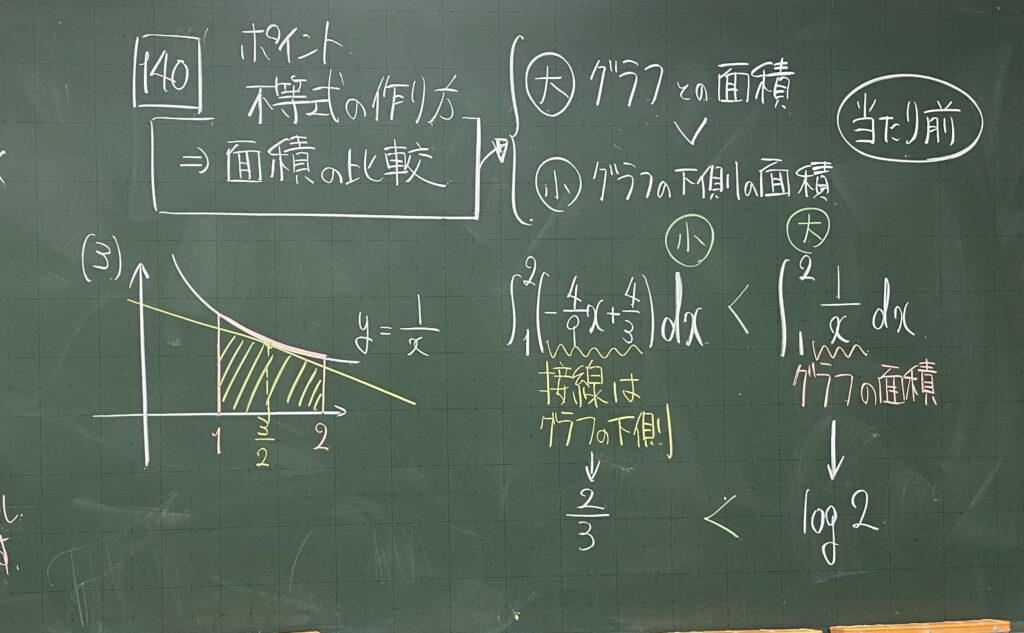 140
ポイント
不等式の作り方
⇒ 面積の比較
大 グラフとの面積
∨
小 グラフの下側の面積
当たり前
(3)
y = 1/x
1 3/2 2
小 大
∫₁²(-4/9x+4/3)dx < ∫₁² 1/x dx
接線は
グラフの下側
グラフの面積
↓ ↓
2/3 < log 2